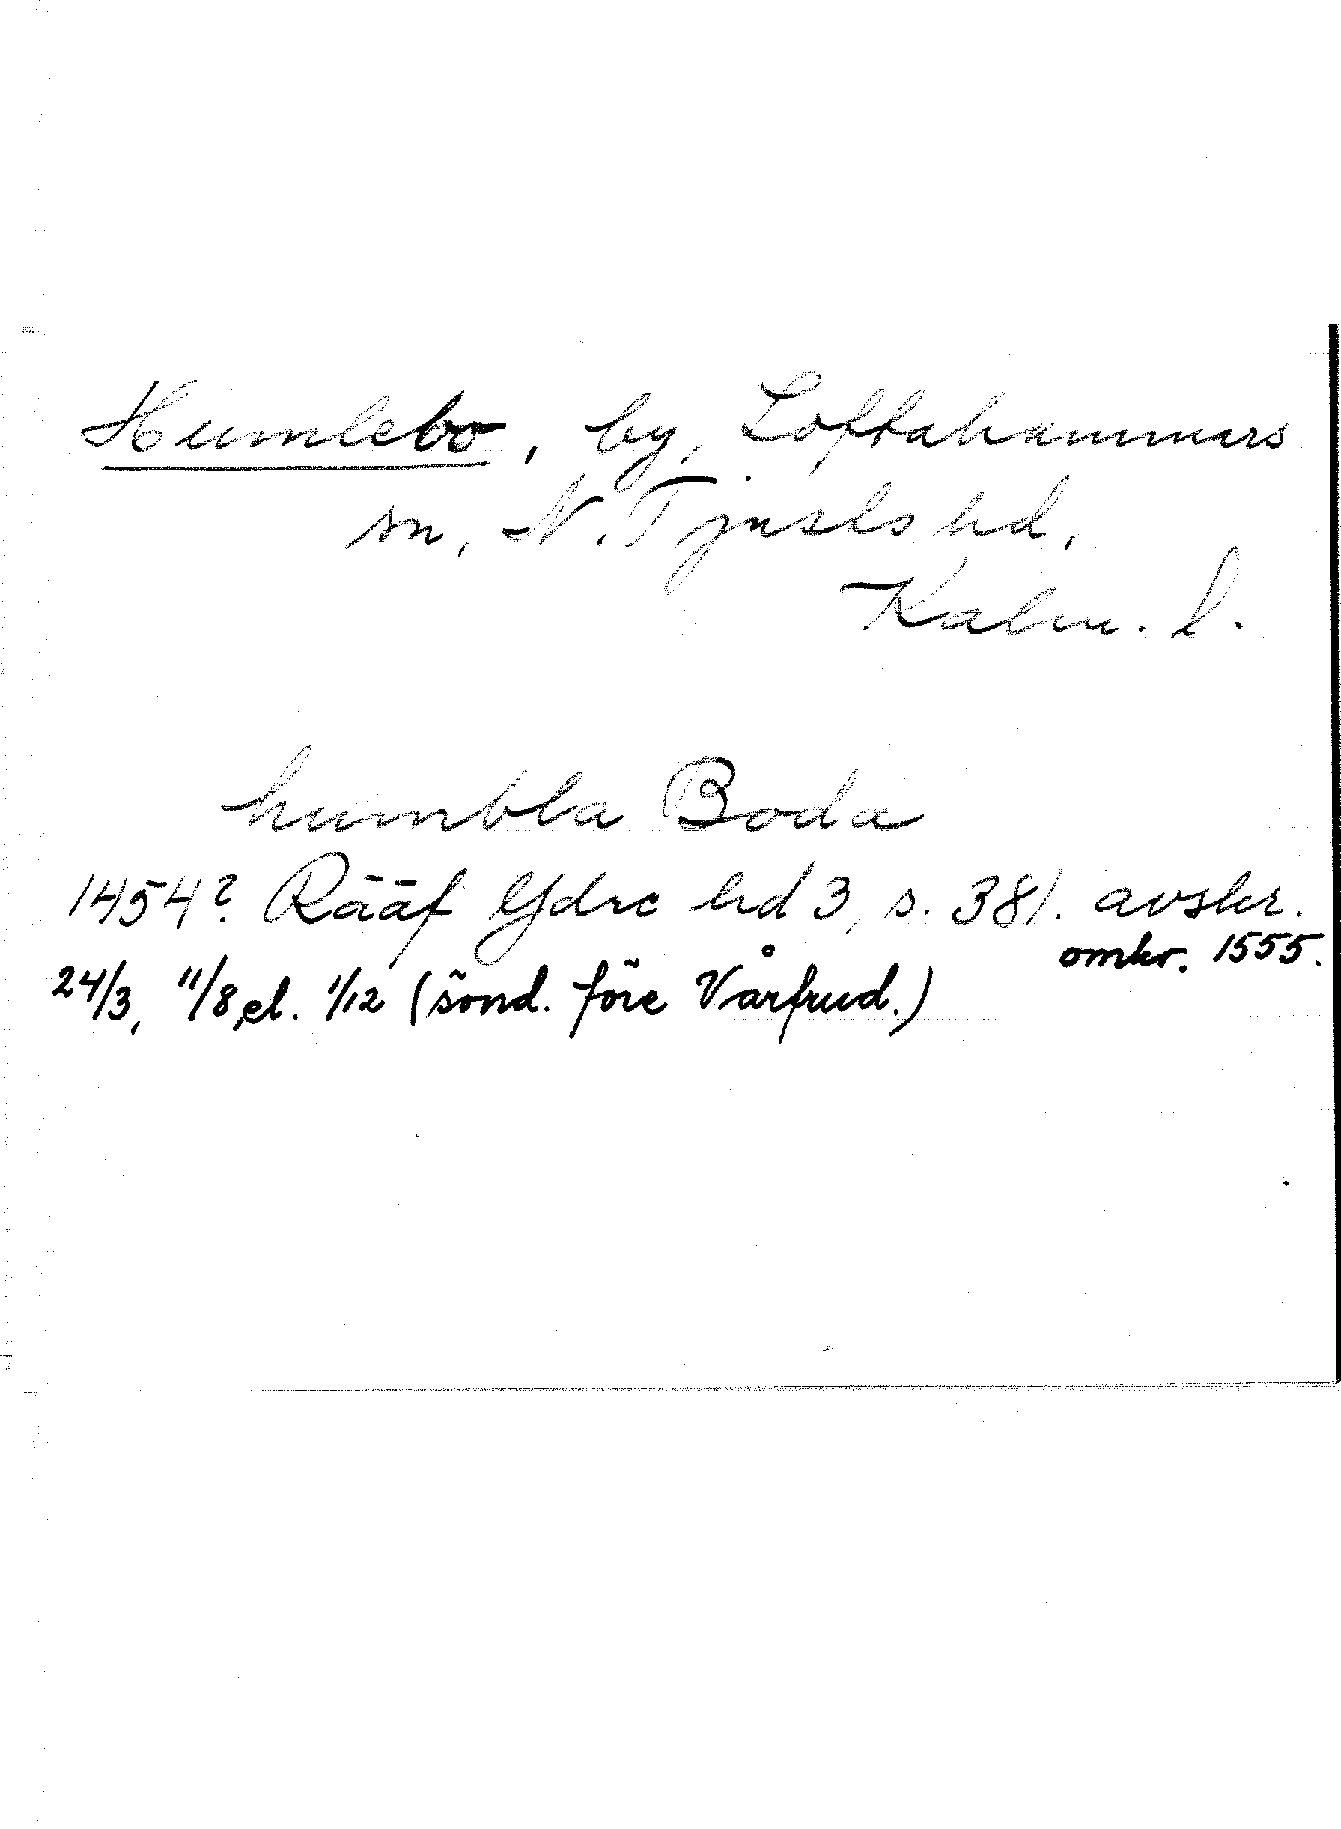 Humlebo, by, Loftahammars
sn, N. Tjusts hd,
Kalm. l.
humbla Boda
1454? Rääf Ydre hd 3, s. 381. avskr.
omkr. 1555.
24/3, 11/8, el. 1/12 (sönd. före Vårfrud.)